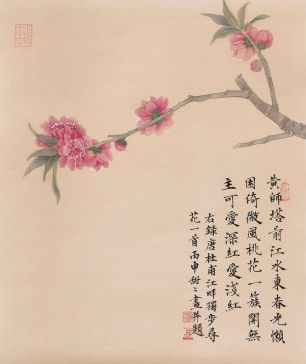 黄師塔前江水東春光懶
困倚微風桃花一簇開無
主可愛深紅愛淺紅
右錄唐杜甫江畔獨步尋
花一首丙申
畫并題